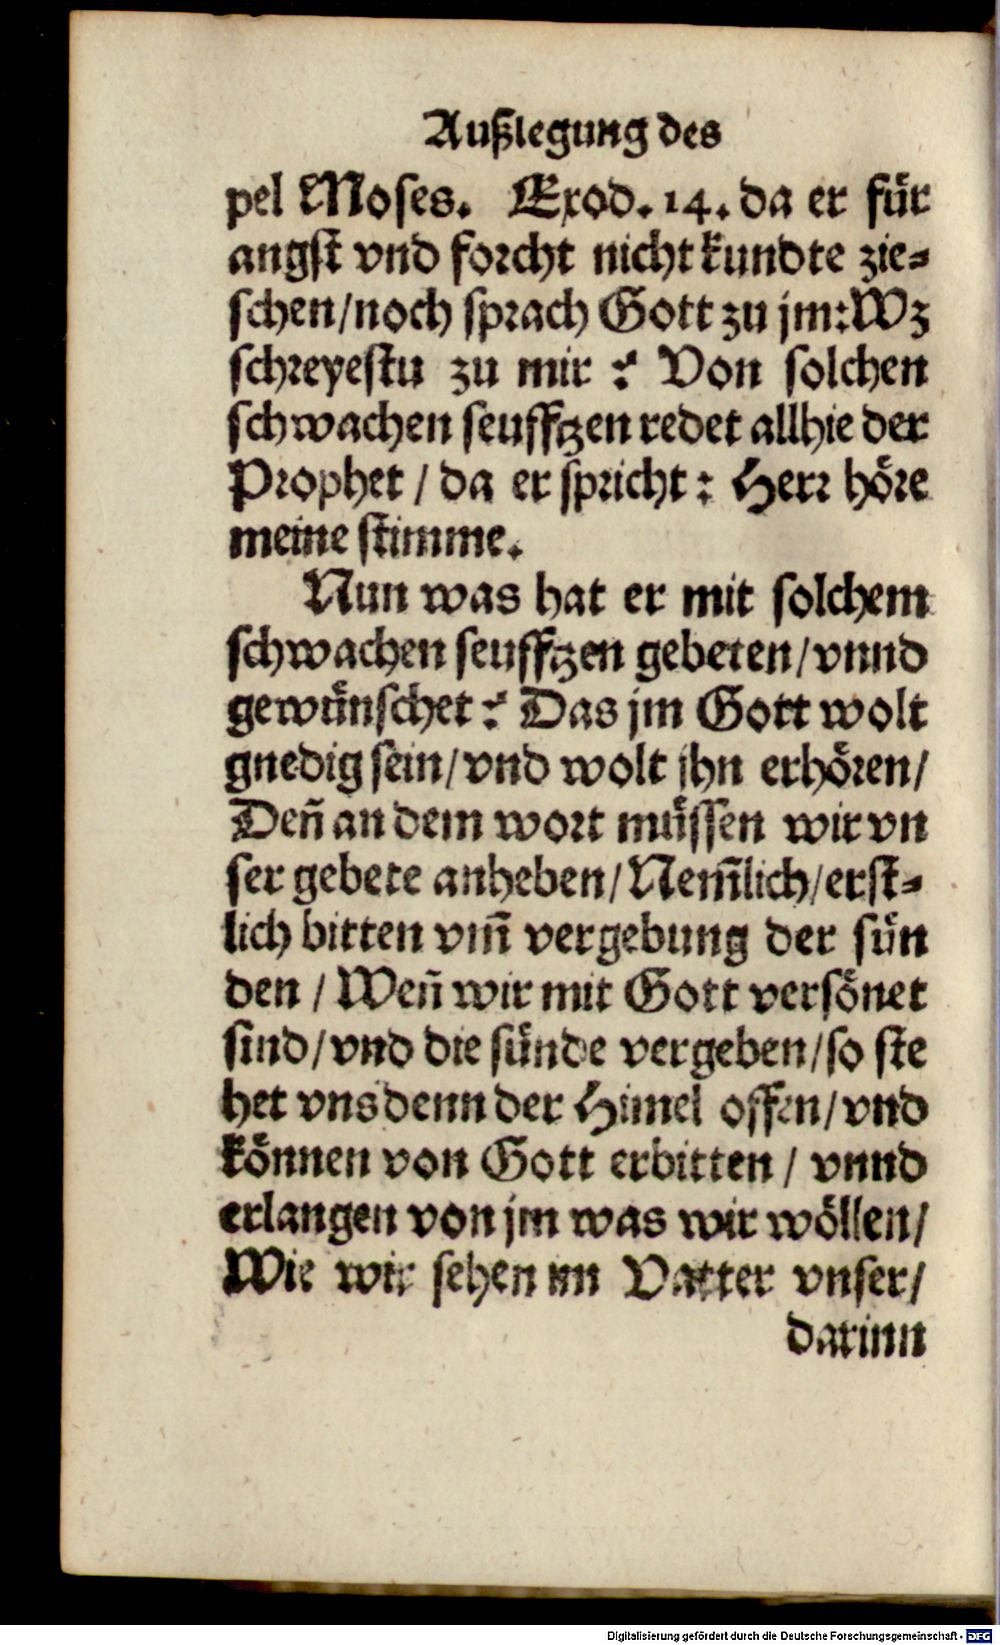 Außlegung des
pel Moses. Exod. 14. da er für
angst vnd forcht nicht kundte zie-
schen/noch sprach Gott zu jm: Wz
schreyestu zu mir? Von solchen
schwachen seufftzen redet allhie der
Prophet / da er spricht: Herr höre
meine stimme.
Nun was hat er mit solchem
schwachen seufftzen gebeten/vnnd
gewünschet? Das jm Gott wolt
gnedig sein/vnd wolt jhn erhören/
Deñ an dem wort müssen wir vn
ser gebete anheben/Nem̃lich/erst-
lich bitten vm̃ vergebung der sün
den / Weñ wir mit Gott versönet
sind/vnd die sünde vergeben/so ste
het vns denn der Himel offen/vnd
können von Gott erbitten / vnnd
erlangen von jm was wir wöllen/
Wie wir sehen im Vatter vnser/
darinn
Digitalisierung gefördert durch die Deutsche Forschungsgemeinschaft - DFG